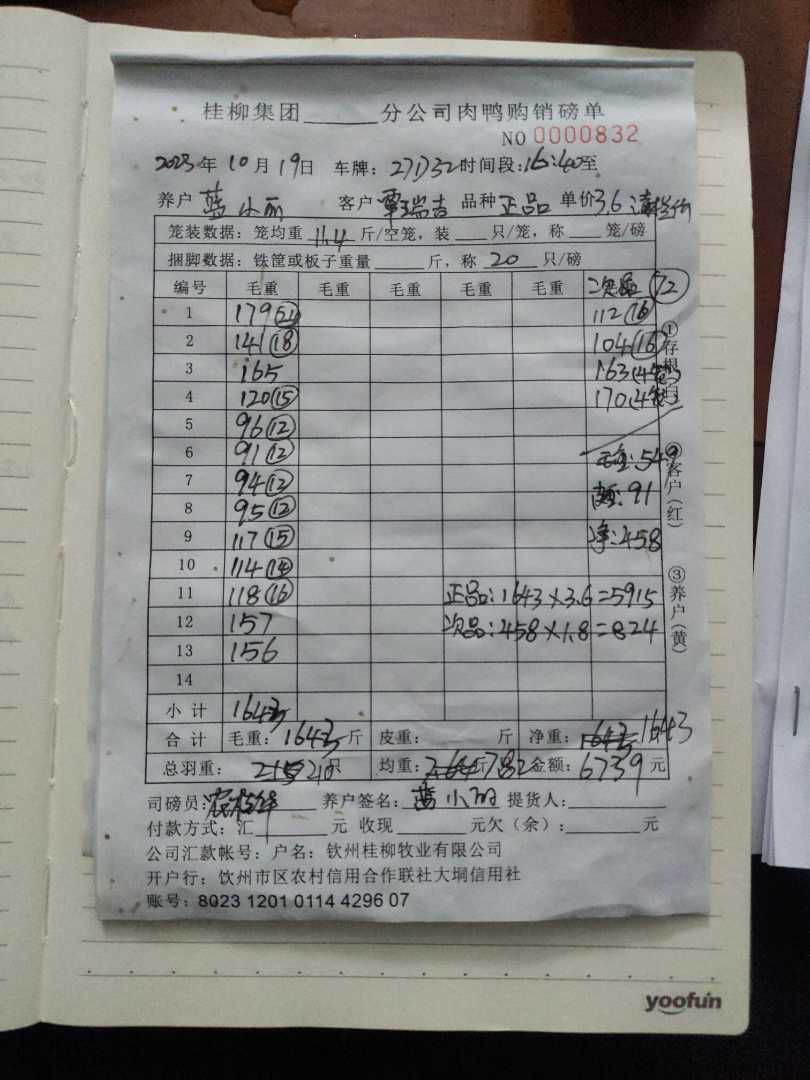 桂柳集团______分公司肉鸭购销磅单
NO 0000832
2023年10月19日 车牌:27132时间段:16:40至
养户 蓝小丽 客户 覃瑞吉 品种 正品 单价3.6
笼装数据:笼均重 11.4 斤/空笼,装___只/笼,称___笼/磅
捆脚数据:铁筐或板子重量____斤,称 20 只/磅
编号 毛重 毛重 毛重 毛重 毛重 次品 72
1 179 112 16
2 141 18 104 16
3 165 163
4 120 15 170
5 96 12
6 91 12 毛重:549
7 94 12 91
8 95 12
9 117 15 净:458
10 114 14
11 118 16 正品:1643×3.6=5915
12 157 次品:458×1.8=824
13 156
14
小计 1643
合计 毛重:1643斤 皮重: 斤 净重: 1643
总羽重: 210只 均重: 7.82 金额:6739元
司磅员: 养户签名:蓝小丽 提货人:
付款方式:汇______元 收现______元欠(余):______元
公司汇款帐号:户名:钦州桂柳牧业有限公司
开户行:钦州市区农村信用合作联社大垌信用社
账号:8023 1201 0114 4296 07
①存根(白)
②客户(红)
③养户(黄)
yoofun